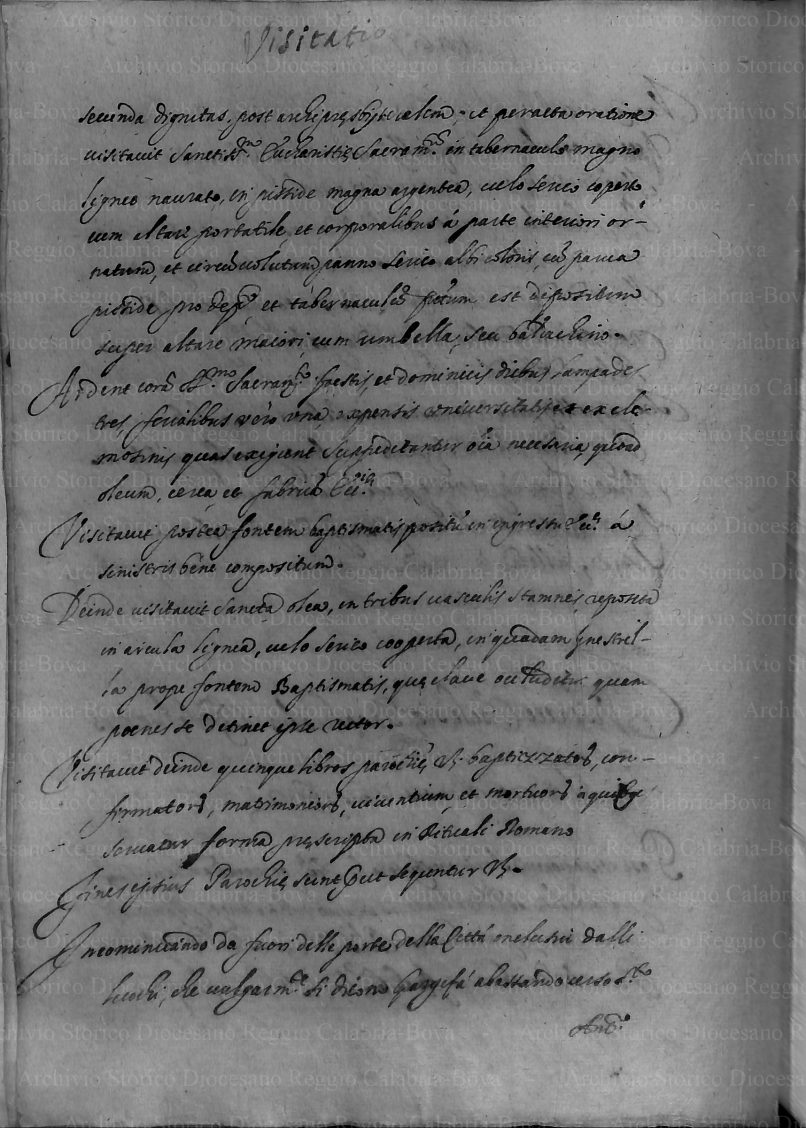 Visitatio
secunda dignitas, post archipresbyteralem, et peracta oratione
visitavit Sanctiss.m Eucharistię Sacram.m in tabernaculo magno
ligneo naurato, in pisside magna argentea, velo serico coperto
cum altare portatile, et corporalibus á parte interiori or-
natum, et circumvolutum panno serico albi coloris, cum parva
pisside pro et tabernaculum est depositum
super altare maiori cum umbella, seu baldachino.
Ardent corã SS.mo Sacram.to festis, et dominicis diebus lampades
tres, ferialibus vero una, expensis universitatis et ex ele-
mosinis quas exigient suppeditantur oĩa necesaria, quoad
oleum, cerea et fabricã Ecc.ię
Visitavit postea fontem baptismatis positũ in ingressu Ecc.ę á
sinistris bene compositum.
Deinde visitavit Sancta olea, in tribus vasculis stamneis reposita
in arcula lignea, velo serico cooperta, in quadam fenestrel-
la prope fontem Baptismatis, quę clave ocluditur quam
poenes se detinet ipse rector.
Visitavit deinde quinque libros parochię, vz. baptizzatorũ, con-
firmatorũ, matrimoniorũ, viventium, et mortuorũ in quibus
servatur forma pręscripta in Rituali Romano
Fines istius Parochię sunt put sequentur vz.
Incominciando da fuori delle porte della Città inclusivi dalli
luochi, che vulgarm.te si dicono abassando verso S.to
And.a